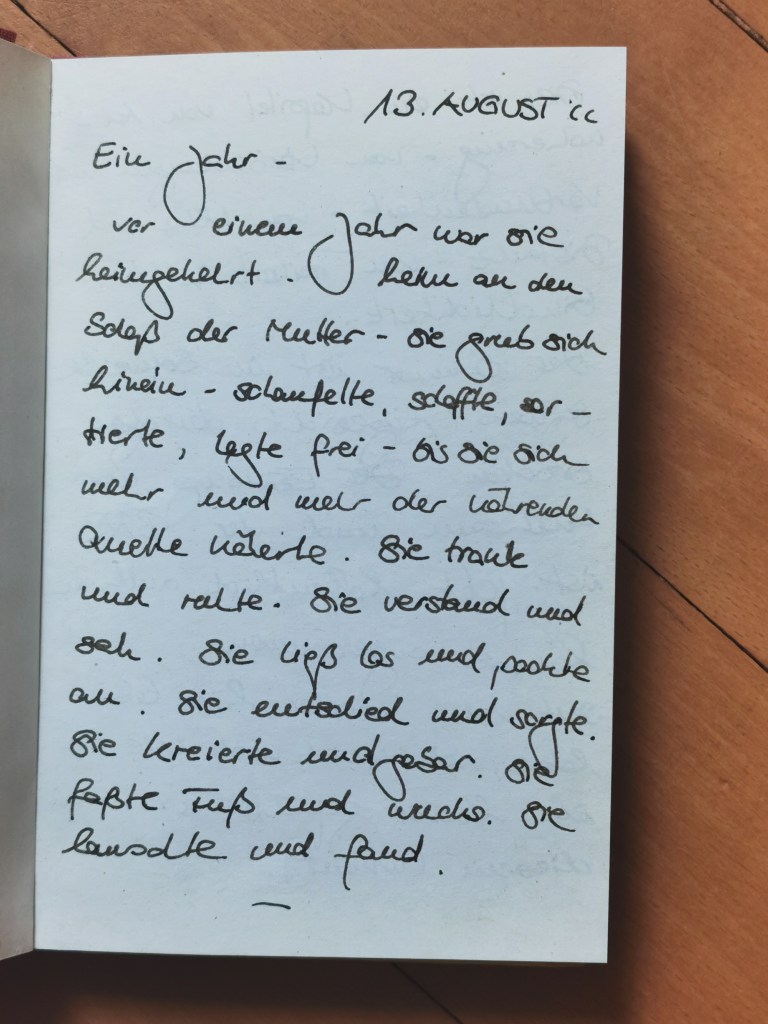 13. AUGUST '22
Ein Jahr -
vor einem Jahr war sie
heimgekehrt. Heim an den
Schoß der Mutter - sie grub sich
hinein - schaufelte, schaffte, sor-
tierte, legte frei - bis sie sich
mehr und mehr der nährenden
Quelle näherte. Sie trank
und ruhte. Sie verstand und
sah. Sie ließ los und packte
an. Sie entschied und sorgte.
Sie kreierte und gebar. Sie
faßte Fuß und wuchs. Sie
lauschte und fand.